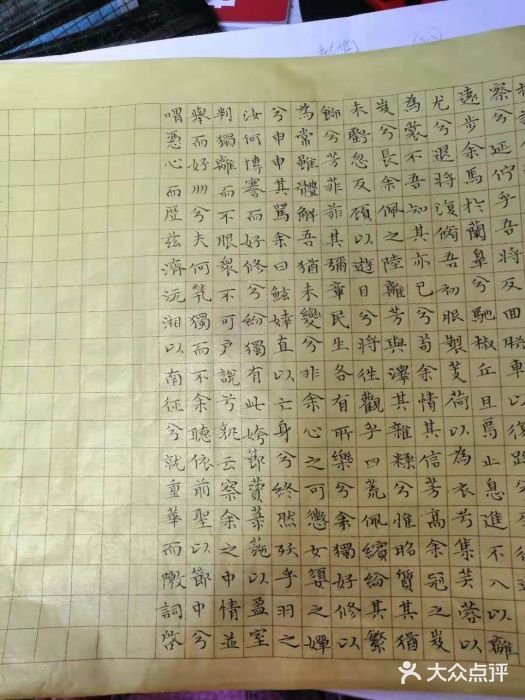 察兮延佇乎吾將反回朕車以復路
遠步余馬於蘭皋兮馳椒丘且焉止息進不入以離
尤兮退將復脩吾初服製芰荷以為衣兮集芙蓉以
為裳不吾知其亦已兮苟余情其信芳高余冠之岌
岌兮長余佩之陸離芳與澤其雜糅兮惟昭質其猶
未虧忽反顧以遊目兮將往觀乎四荒佩繽紛其繁
飾兮芳菲菲其彌章民生各有所樂兮余獨好修以
為常雖體解吾猶未變兮非余心之可懲女嬃之嬋
兮申申其罵余曰鮌婞直以亡身兮終然殀乎羽之
汝何博謇而好修兮紛獨有此姱節薋菉葹以盈室
判獨離而不服衆不可户說兮孰云察余之中情並
舉而好朋兮夫何煢獨而不余聽依前聖以節中兮
喟憑心而歷兹濟沅湘以南征兮就重華而敶詞啓
大众点评